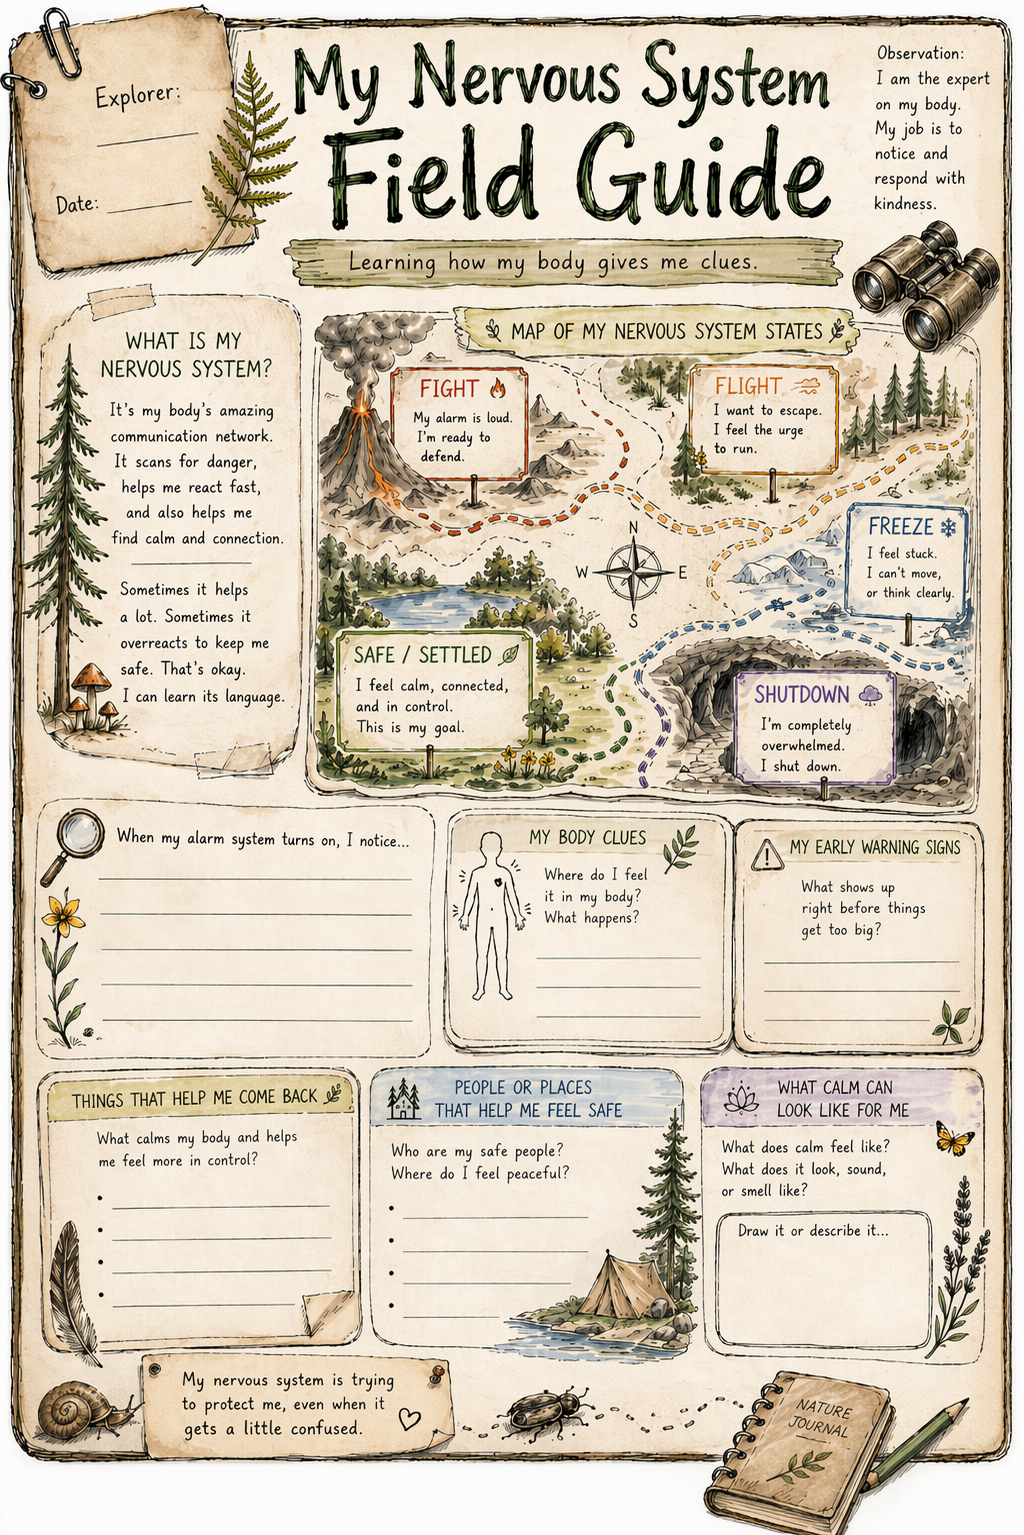 Explorer:
Date:
My Nervous System
Field Guide
Learning how my body gives me clues.
Observation:
I am the expert
on my body.
My job is to
notice and
respond with
kindness.
WHAT IS MY
NERVOUS SYSTEM?
It's my body's amazing
communication network.
It scans for danger,
helps me react fast,
and also helps me
find calm and connection.
Sometimes it helps
a lot. Sometimes it
overreacts to keep me
safe. That's okay.
I can learn its language.
MAP OF MY NERVOUS SYSTEM STATES
FIGHT
My alarm is loud.
I'm ready to
defend.
FLIGHT
I want to escape.
I feel the urge
to run.
FREEZE
I feel stuck.
I can't move,
or think clearly.
N
W
E
S
SAFE / SETTLED
I feel calm, connected,
and in control.
This is my goal.
SHUTDOWN
I'm completely
overwhelmed.
I shut down.
When my alarm system turns on, I notice...
MY BODY CLUES
Where do I feel
it in my body?
What happens?
MY EARLY WARNING SIGNS
What shows up
right before things
get too big?
THINGS THAT HELP ME COME BACK
What calms my body and helps
me feel more in control?
PEOPLE OR PLACES
THAT HELP ME FEEL SAFE
Who are my safe people?
Where do I feel peaceful?
WHAT CALM CAN
LOOK LIKE FOR ME
What does calm feel like?
What does it look, sound,
or smell like?
Draw it or describe it...
My nervous system is trying
to protect me, even when it
gets a little confused.
NATURE
JOURNAL